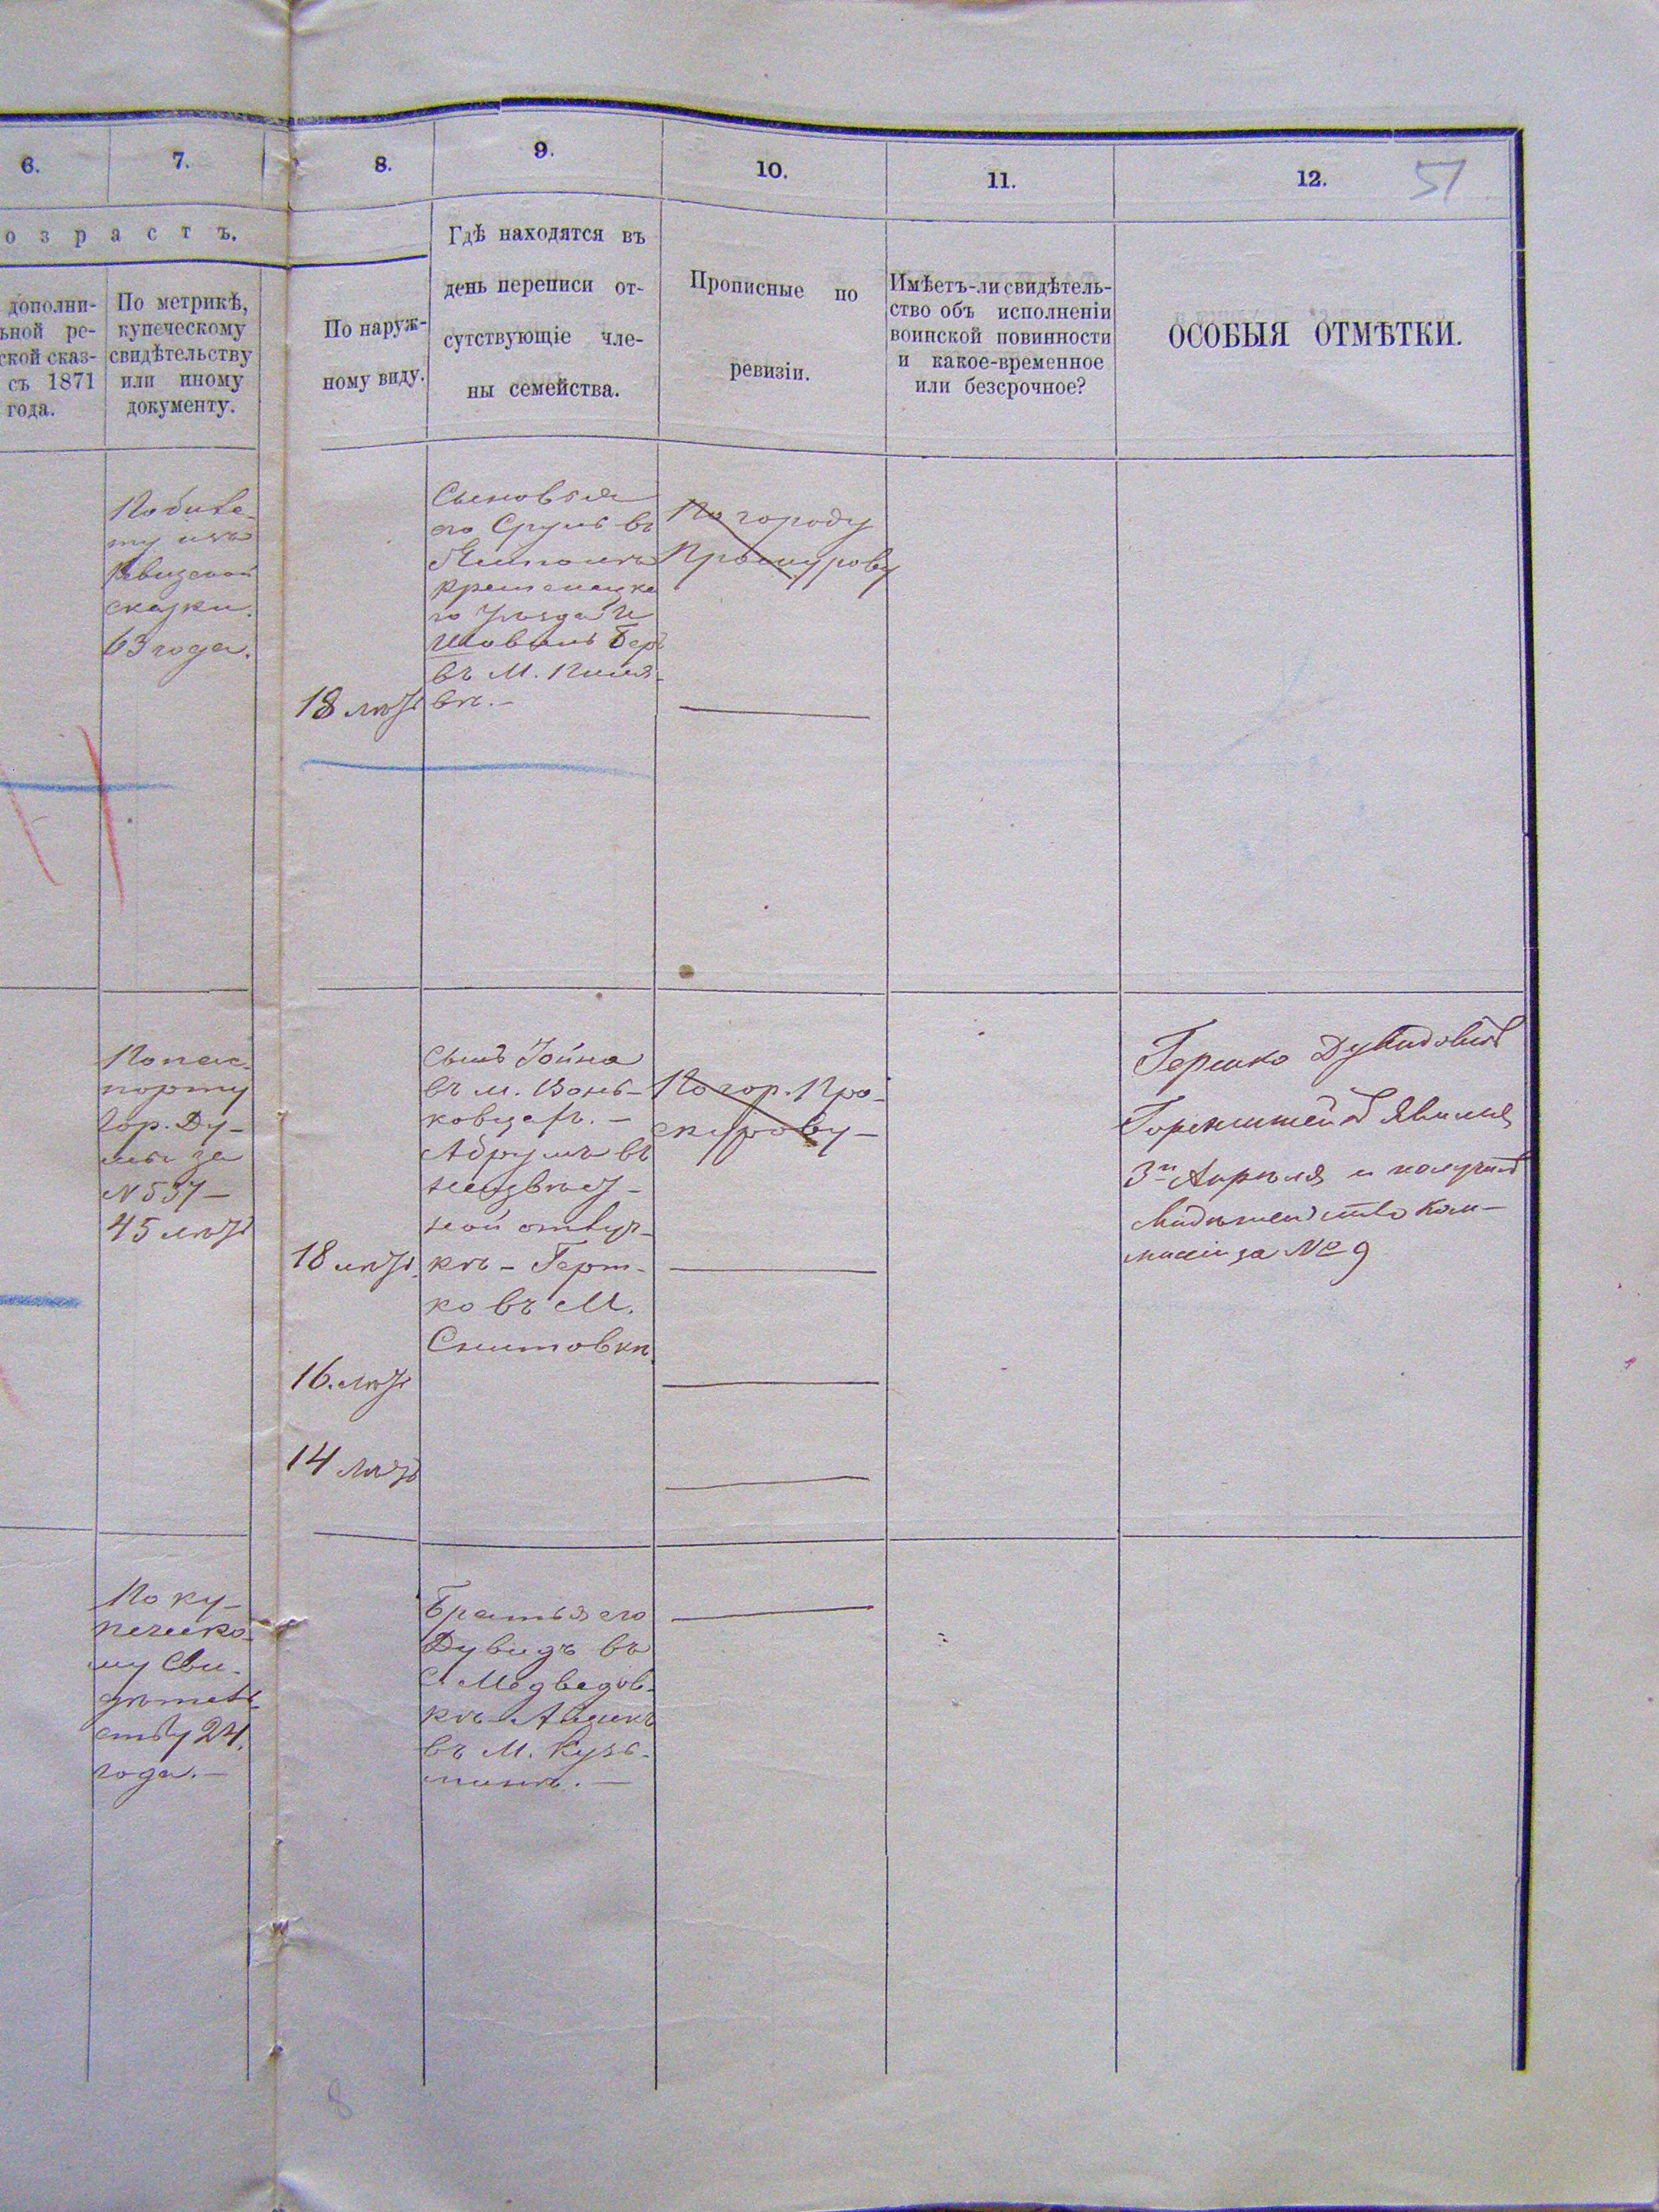 6.
7.
8.
9.
10.
11.
12.
51
о з р а с т ъ.
дополни-
ьной ре-
ской сказ-
съ 1871
года.
По метрикѣ,
купеческому
свидѣтельству
или иному
документу.
По наруж-
ному виду.
Гдѣ находятся въ
день переписи от-
сутствующіе чле-
ны семейства.
Прописные по
ревизіи.
Имѣетъ-ли свидѣтель-
ство объ исполненіи
воинской повинности
и какое-временное
или безсрочное?
ОСОБЫЯ ОТМѢТКИ.
По билe-
ту изъ
Ревизской
сказки.
63 года.
18 лѣтъ
Сыновья
его Сруль въ
Ямполѣ
Кременецка
го Уѣзда и
Шовель Беръ
въ М. Пиля-
вѣ.-
По городу
Проскурову
По пас-
порту
Гор. Ду-
мы за
N 537-
45 лѣтъ
18 лѣтъ
16. лѣтъ
14 лѣтъ
Сынъ Іойна
въ м. Вонь-
ковцахъ.-
Абрумъ въ
неизвѣст-
ной отлуч-
кѣ - Герш-
ко въ М.
Снитовкѣ
По гор. Про-
скурову-
Гершко Дувидовичъ
Горенштейнъ явился
3го Апрѣля и получилъ
свидѣтельство Ком-
мисіи за № 9
По ку-
печеско-
му Сви-
дѣтель-
ству 24
года.-
Братья его
Дувидъ въ
с Медведов-
кѣ - Айзикъ
въ М. Кузь-
минѣ.-
8